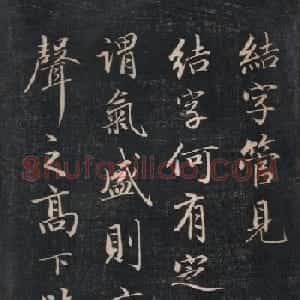 結字管見
結字何有定
謂氣盛則言
聲之高下皆
shufaziliao.com